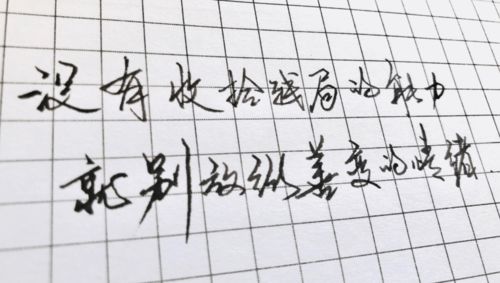 没有收拾残局的能力
就别放纵善变的情绪